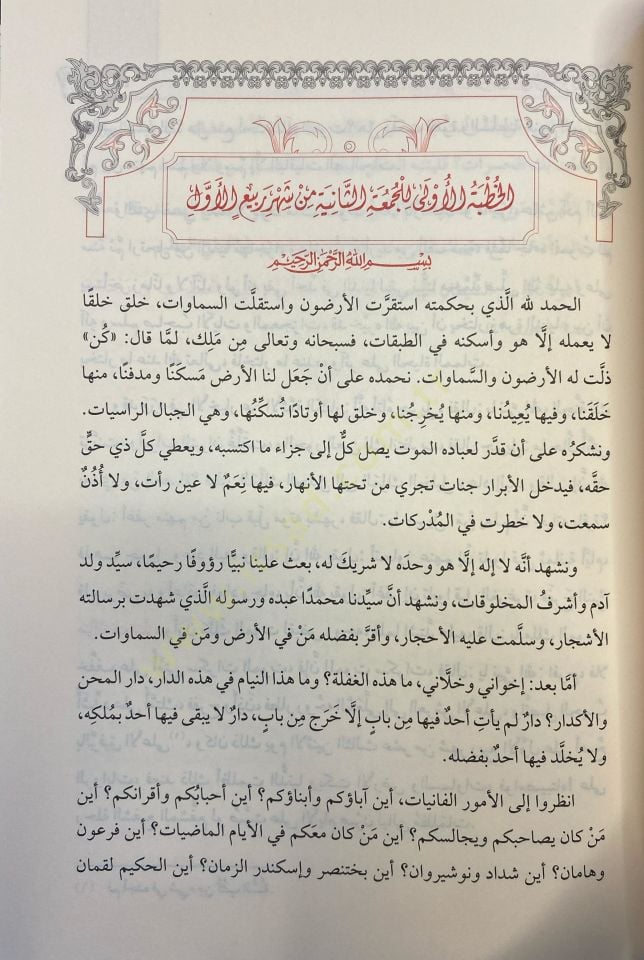 الخُطْبَةُ الأُوْلَى لِلْجُمُعَةِ الثَّانِيَةِ مِنْ شَهْرِ رَبِيعٍ الأَوَّلِ
بِسْمِ اللهِ الرَّحْمَنِ الرَّحِيْمِ
الحمد لله الَّذي بحكمته استقرَّت الأرضون واستقلَّت السماوات، خلق خلقًا
لا يعمله إلَّا هو وأسكنه في الطبقات، فسبحانه وتعالى مِن مَلِك، لمَّا قال: «كُن»
ذلَّت له الأرضون والسَّماوات. نحمده على أنْ جَعَل لنا الأرض مَسكَنًا ومدفنًا، منها
خَلَقَنا، وفيها يُعِيدُنا، ومنها يُخرِجُنا، وخلق لها أوتادًا تُسكِّنُها، وهي الجبال الراسيات.
ونشكرُه على أن قدَّر لعباده الموت يصل كلٌّ إلى جزاء ما اكتسبه، ويعطي كلَّ ذي حقٍّ
حقَّه، فيدخل الأبرار جنات تجري من تحتها الأنهار، فيها نِعَمٌ لا عين رأت، ولا أُذُنٌ
سمعت، ولا خطرت في المُدْركات.
ونشهد أنَّه لا إله إلَّا هو وحدَه لا شريكَ له، بعث علينا نبيًّا رؤوفًا رحيمًا، سيِّد ولد
آدم وأشرفُ المخلوقات، ونشهد أنَّ سيِّدنا محمدًا عبده ورسوله الَّذي شهدت برسالته
الأشجار، وسلَّمت عليه الأحجار، وأقرَّ بفضله مَنْ في الأرض ومَن في السماوات.
أمَّا بعد: إخواني وخلَّاني، ما هذه الغفلة؟ وما هذا النيام في هذه الدار، دار المحن
والأكدار؟ دارٌ لم يأتِ أحدٌ فيها مِن بابٍ إلَّا خَرَج مِن بابٍ، دارٌ لا يبقى فيها أحدٌ بمُلكِه،
ولا يُخلَّد فيها أحدٌ بفضله.
انظروا إلى الأمور الفانيات، أين آباؤكم وأبناؤكم؟ أين أحبابُكم وأقرانكم؟ أين
مَنْ كان يصاحبكم ويجالسكم؟ أين مَنْ كان معَكم في الأيام الماضيات؟ أين فرعون
وهامان؟ أين شداد ونوشيروان؟ أين بختنصر وإسكندر الزمان؟ أين الحكيم لقمان